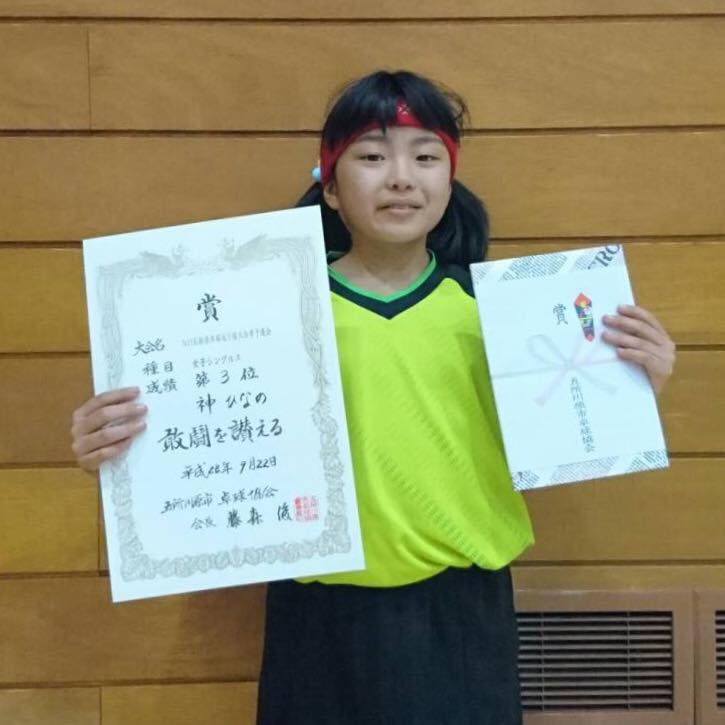 賞
大会名
種目 女子シングルス
成績 第3位
神ひなの
敢闘を讃える
平成28年9月22日
五所川原市卓球協会
会長 藤森
賞
五所川原市卓球協会